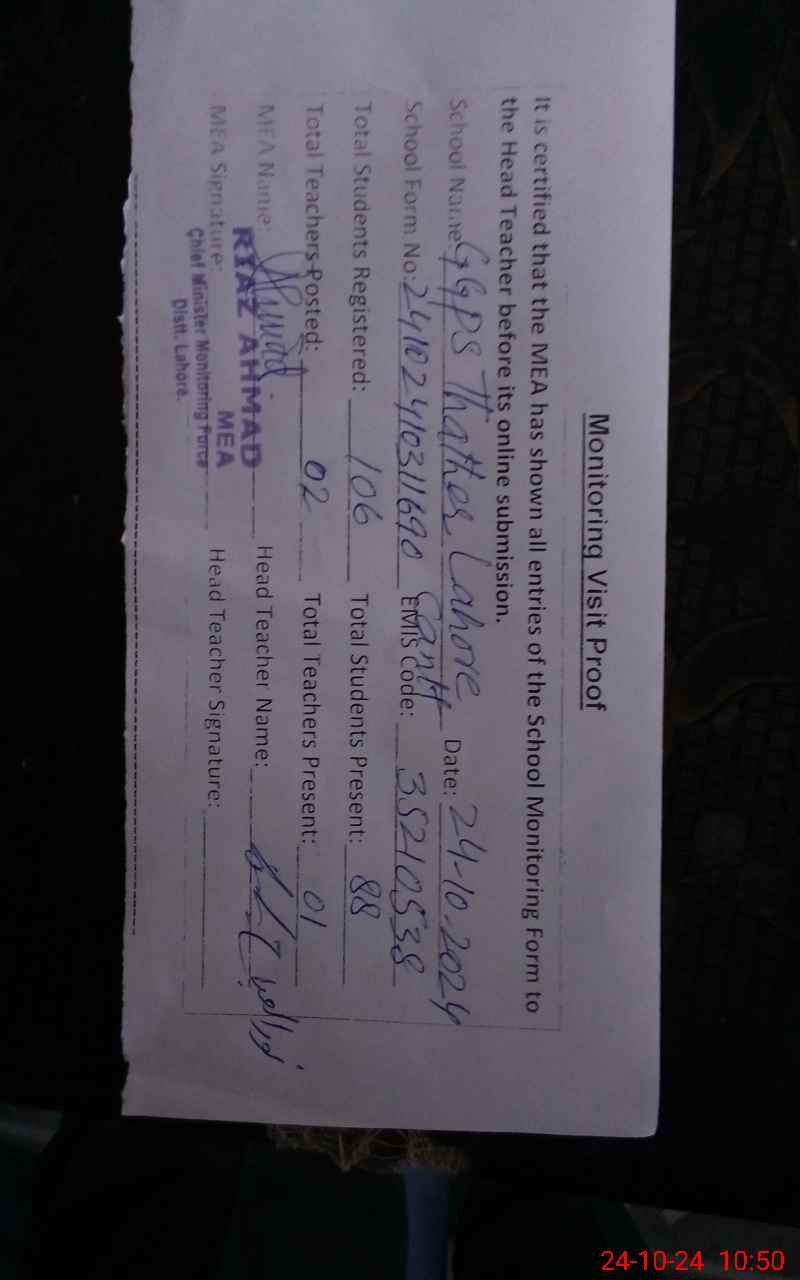 Monitoring Visit Proof
It is certified that the MEA has shown all entries of the School Monitoring Form to
the Head Teacher before its online submission.
School Name: GGPS Thather Lahore Cantt Date: 24-10-2024
School Form No: 24102410311690 EMIS Code: 35210538
Total Students Registered: 106 Total Students Present: 88
Total Teachers Posted: 02 Total Teachers Present: 01
MEA Name: Head Teacher Name:
RIAZ AHMAD
MEA Signature: Head Teacher Signature:
MEA
Chief Minister Monitoring Force
Distt. Lahore.
24-10-24 10:50